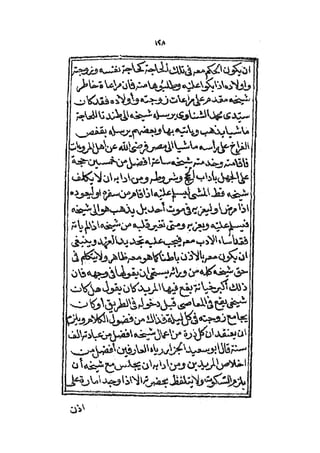 ١٢٨
ان يكون الحكم معه في ذلك لحاجة كحاجة نفسه وزوجته
واولاده اذا بكوا عليه وطلبوها منه فان مراعاة خاطر
شيخه مقدم على مراعات زوجته واولاده فقد كان
سيدي محمد الشناوي يرسله شيخه الى طندتا للحاجة
ماشيا يذهب وياتيه بها وبعضهم يرسله بقفص
الفراخ على راسه ماشيا الى مصر فرضي الله عن اهل المروات
فاقامته وخدمته شيخه ساعة افضل من خمسين حجة
على الجهل باداب الحج وشروطه ومن ادابه ان لا يكلف
شيخه قط المشي ليسلم عليه اذا قدم من سفر او ليعوده
اذا مرض او ليعزيه في موت احد بل يذهب هو الى شيخه
فيسلم عليه ويعزيه ومتى تغير قلبه من شيخه اذ لم ياته
فقد اساء الادب معه فيجب عليه تجديد العهد وينبغي
ان يكون معه بالاذن باطنا كما هو معه ظاهر ولا يتكلم في
حق شيخه كلمة من ورائه يستحي ان يقولها في وجهه فان
ذلك اكبر خيانة يقع فيها المريد كان يقول هل كان
شيخي يقع في المعاصي قبل دخوله في الطريق او كان
يجامع زوجته في كل ليلة فذلك من فضول الكلام ويلزم
ان يعتقد ان كل ذرة من اعمال شيخه افضل من عبادته الف
سنة قال ابو سعيد الخراز رياء العارفين افضل من
اخلاص المريدين ومن ادابه ان يجلس مع شيخه ان
يلزم السكوت ولا يتلفظ بحضرته الا اذا وجد امارة على
اذن